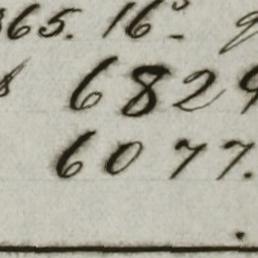 365. 16⁵. 9
6829
6077.